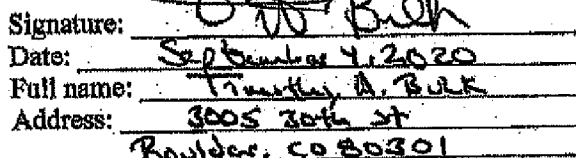 Signature: Bulk
Date: September 4, 2020
Full name: Timothy A. Bulk
Address: 3005 30th st
Boulder, CO 80301